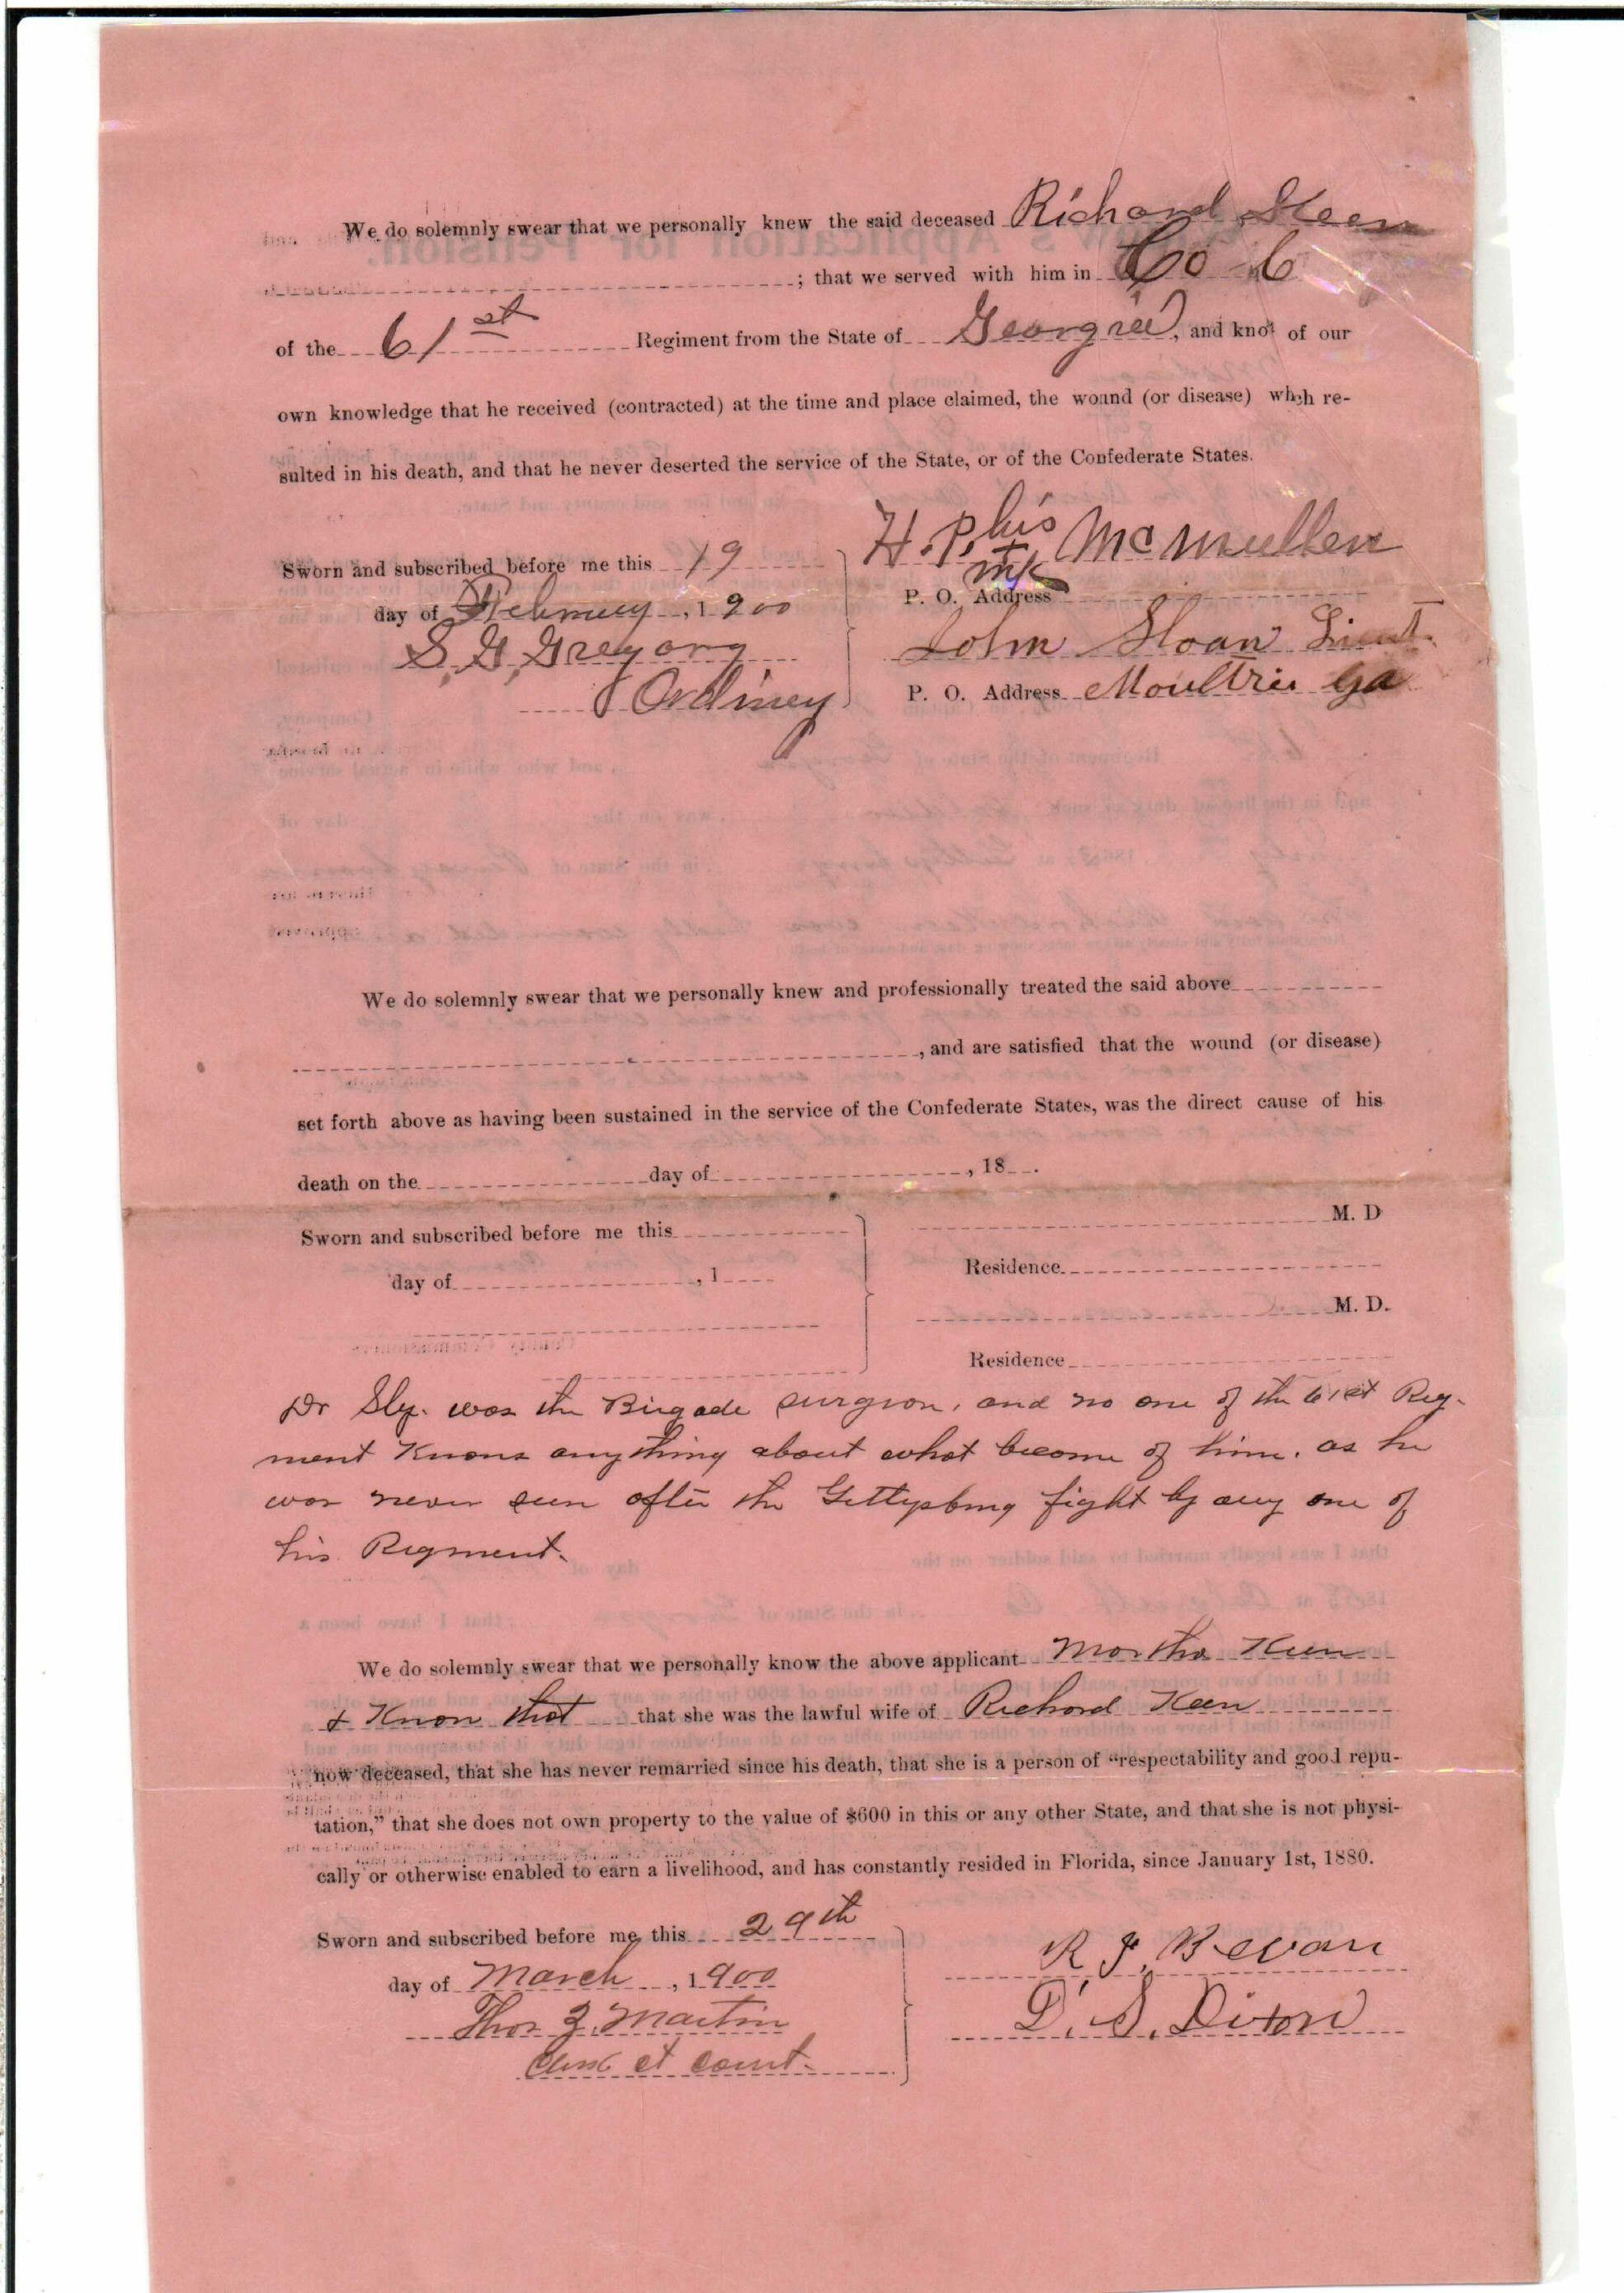 We do solemnly swear that we personally knew the said deceased Richard Keen
; that we served with him in Co C
of the 61st Regiment from the State of Georgia, and kno* of our
own knowledge that he received (contracted) at the time and place claimed, the wound (or disease) wh*ch re-
sulted in his death, and that he never deserted the service of the State, or of the Confederate States.
Sworn and subscribed before me this 19
day of February, 1900
S. G. Gregory
Ordiney
H. P. his + mk McMullen
P. O. Address
John Sloan Lieut.
P. O. Address Moultrie Ga
We do solemnly swear that we personally knew and professionally treated the said above
, and are satisfied that the wound (or disease)
set forth above as having been sustained in the service of the Confederate States, was the direct cause of his
death on the day of , 18 .
Sworn and subscribed before me this
day of , 1
M. D
Residence
M. D.
Residence
Dr Sly. was the Brigade surgeon, and no one of the 61st Reg-
ment Knows anything about what become of him. as he
was never seen after the Gettysburg fight by any one of
his Regment.
We do solemnly swear that we personally know the above applicant Martha Keen
& Know that that she was the lawful wife of Richard Keen
now deceased, that she has never remarried since his death, that she is a person of “respectability and good repu-
tation,” that she does not own property to the value of $600 in this or any other State, and that she is not physi-
cally or otherwise enabled to earn a livelihood, and has constantly resided in Florida, since January 1st, 1880.
Sworn and subscribed before me this 29th
day of March, 1900
Thos J. Martin
Clerk ct court.
R. J. Bevan
D. S. Dixon